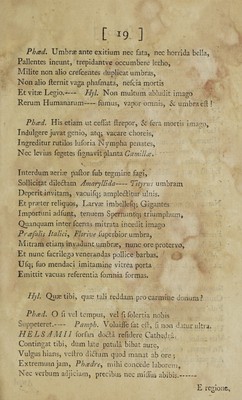 [ 19 ]
Phæd. Umbræ ante exitium nec fata, nec horrida bella,
Pallentes ineunt, trepidantve occumbere letho,
Milite non alio crescentes duplicat umbras,
Non alio sternit vaga phasmata, nescia mortis
Et vitæ Legio.—— Hyl. Non multum abludit imago
Rerum Humanarum—— fumus, vapor omnis, & umbra est!
Phæd. His etiam ut cessat strepor, & fera mortis imago,
Indulgere juvat genio, atq; vacare choreis,
Ingreditur rutilos lusoria Nympha penates,
Nec levius segetes signavit planta Camillæ.
Interdum aeriæ pastor sub tegmine fagi,
Sollicitat dilectam Amaryllida—— Tityrus umbram
Deperit invitam, vacuisq; amplectitur ulnis.
Et præter reliquos, Larvæ imbullesq; Gigantes
Importuni adsunt, tenuem Spermentiq; triumphum,
Quanquam inter scenas mitrata incedit imago
Præsulis Italici, Fluviæ superbior umbra,
Mitram etiam invadunt umbræ, nunc ore protervo,
Et nunc sacrilega venerandas pollice barbas.
Usq; suo mendaci imitamine vitrea porta
Emittit vacuas referentia somnia formas.
Hyl. Quæ tibi, quæ tali reddam pro carmine donuma?
Phæd. O si vel tempus, vel si solertia nobis
Suppeteret.—— Pamph. Voluisse sat est, si non datur ultra.
HELSAMII socius docta residere Cathedra
Contingat tibi, dum late petulâ bibat aure,
Vulgus hians, vestro dictum quod manat ab ore;
Extremum jam, Phædre, mihi concede laborem,
Nec verbum adjiciam, precibus nec missus abibis.——
E regione,